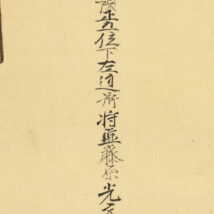 正五位下左近衛将監藤原光